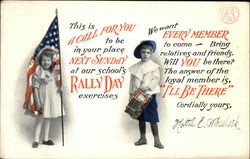 This is
A CALL FOR YOU
to be
in your place
NEXT SUNDAY
at our school's
RALLY DAY
exercises
We want
EVERY MEMBER
to come — Bring
relatives and friends.
Will YOU be there?
The answer of the
loyal member is,
"I'LL BE THERE"
Cordially yours,